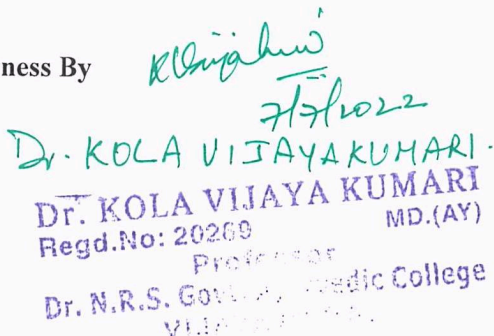 ness By
7/7/2022
Dr. KOLA VIJAYAKUMARI.
Dr. KOLA VIJAYA KUMARI
MD.(AY)
Regd.No: 20269
Professor
Dr. N.R.S. Govt. College